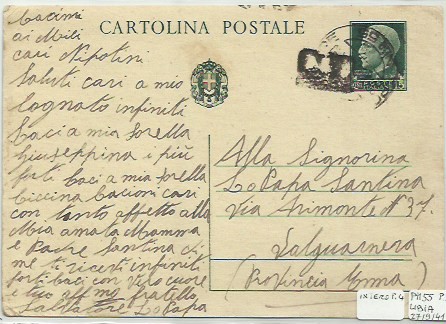 CARTOLINA POSTALE
Bacioni
ai Miei
cari Nipotini
Saluti cari a mio
Cognato infiniti
baci a mia sorella
Giuseppina i più
forti baci a mia sorella
Ciccina bacioni cari
con tanto affetto alla
Mia amata Mamma
e Padre Santina di
me ti ricerti infiniti
forti baci con vero cuore
e tuo aff mo fratello
Salvatore Lo Papa
Alla Signorina
Lo Papa Santina
Via Trimonte N° 37
Valguarnera
(Provincia Enna)
INTERO P. G
PM 55 P.
LIBIA
27/9/41